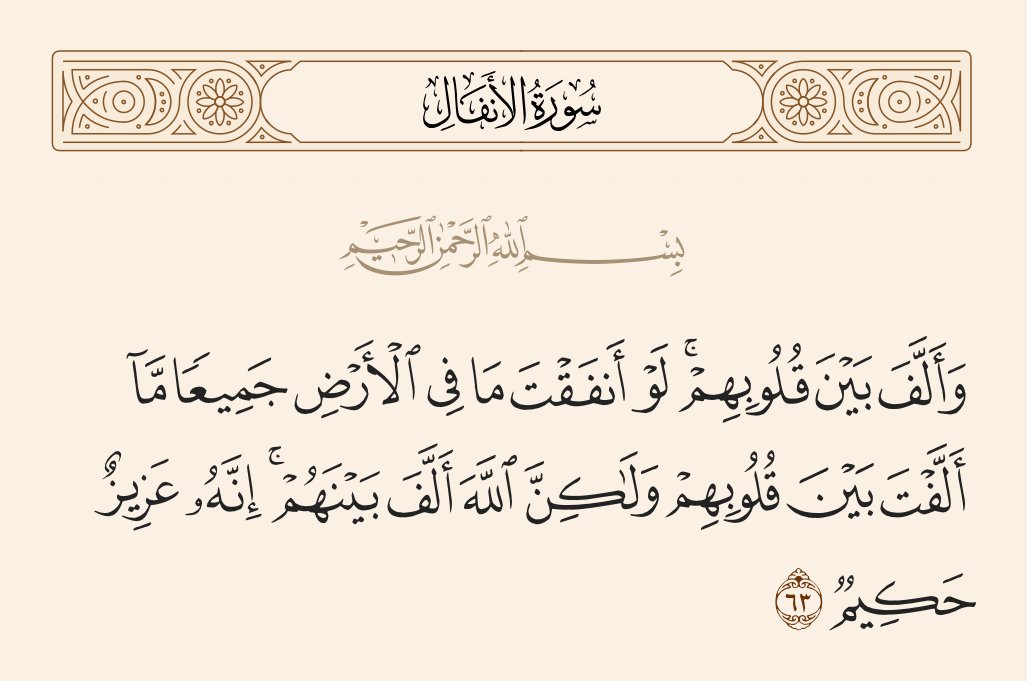 سُورَةُ الأَنفَالِ
بِسْمِ ٱللَّهِ ٱلرَّحْمَٰنِ ٱلرَّحِيمِ
وَأَلَّفَ بَيْنَ قُلُوبِهِمْ ۚ لَوْ أَنفَقْتَ مَا فِى ٱلْأَرْضِ جَمِيعًا مَّآ
أَلَّفْتَ بَيْنَ قُلُوبِهِمْ وَلَٰكِنَّ ٱللَّهَ أَلَّفَ بَيْنَهُمْ ۚ إِنَّهُۥ عَزِيزٌ
حَكِيمٌ ٦٣